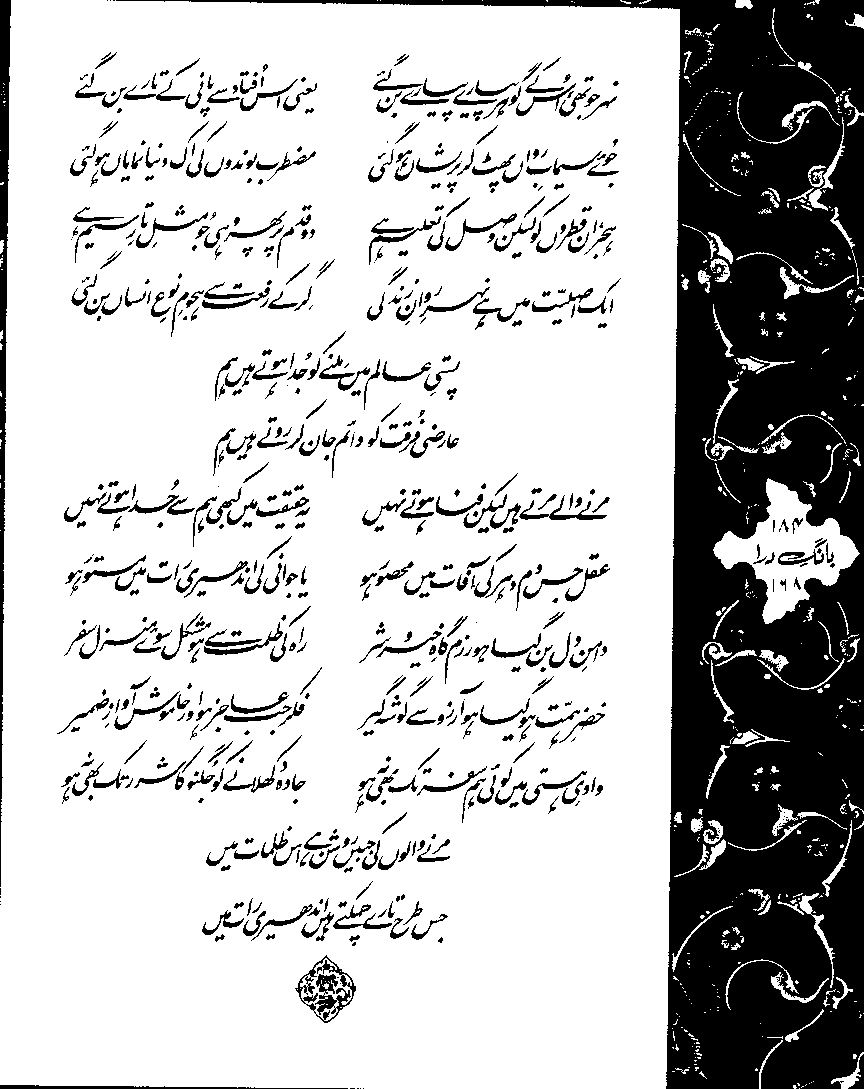 نہر جو تھی، اُس کے گوہر پیارے پیارے بن گئے یعنی اس اُفتاد سے پانی کے تارے بن گئے
جُوئے سیمابِ رواں پھٹ کر پریشاں ہو گئی مضطرب بوندوں کی اک دنیا نمایاں ہو گئی
ہجر، ان قطروں کو لیکن وصل کی تعلیم ہے دو قدم پر پھر وہی جُو مثلِ تارِ سیم ہے
ایک اصلیّت میں ہے نہرِ روانِ زندگی گر کے رفعت سے ہجومِ نوعِ انساں بن گئی
پستیِ عالم میں ملنے کو جُدا ہوتے ہیں ہم
عارضی فُرقت کو دائم جان کر روتے ہیں ہم
مرنے والے مرتے ہیں لیکن فنا ہوتے نہیں یہ حقیقت میں کبھی ہم سے جُدا ہوتے نہیں
عقل جس دم دہر کی آفات میں محصور ہو یا جوانی کی اندھیری رات میں مستور ہو
دامنِ دل بن گیا ہو رزم گاہِ خیر و شر راہ کی ظلمت سے ہو مشکل سوئے منزل سفر
خضرِ ہمّت ہو گیا ہو آرزو سے گوشہ گیر فکر جب عاجز ہو اور خاموش آوازِ ضمیر
وادیِ ہستی میں کوئی ہم سفر تک بھی نہ ہو جادہ دکھلانے کو جگنو کا شرر تک بھی نہ ہو
مرنے والوں کی جبیں روشن ہے اس ظلمات میں
جس طرح تارے چمکتے ہیں اندھیری رات میں
۱۸۴
بانگِ درا
۱۶۸